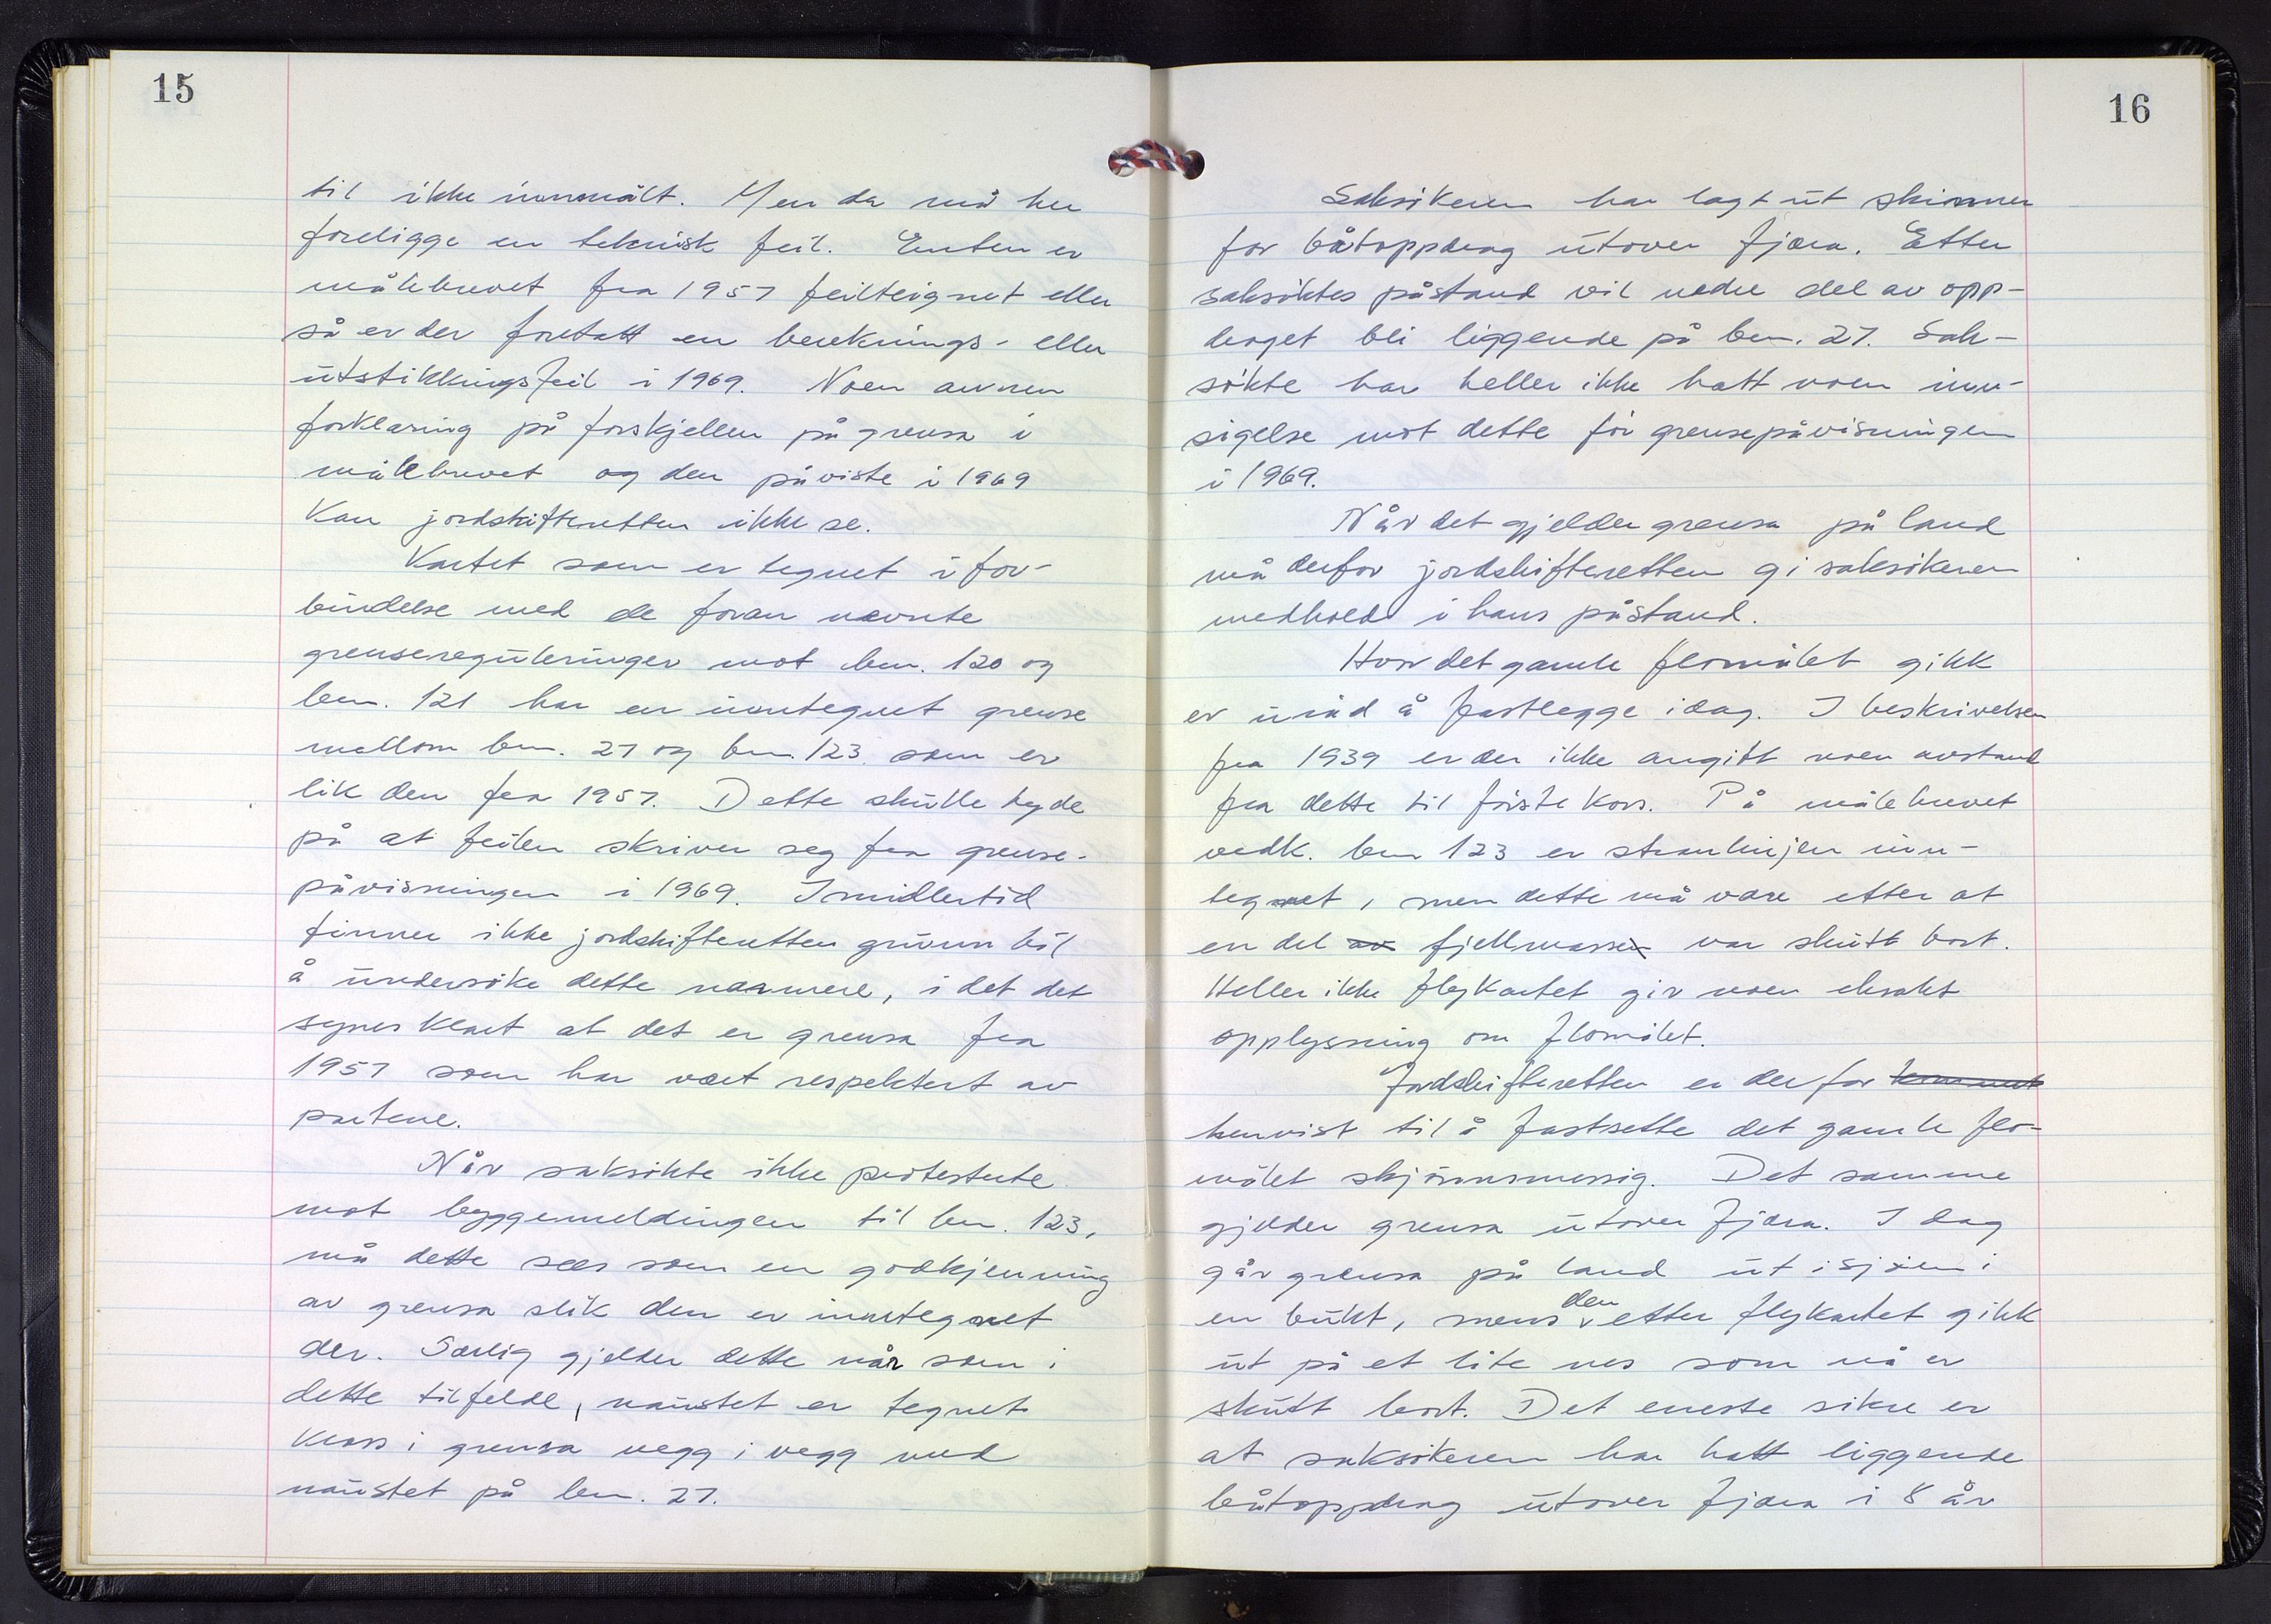 15
til ikke innmålt. Men da må her
foreligge en teknisk feil. Enten er
målebrevet fra 1957 feilteignet eller
så er der foretatt en bereknings- eller
utstikkingsfeil i 1969. Noen annen
forklaring på forskjellen på grensa i
målebrevet og den påviste i 1969
kan jordskifteretten ikke se.
Kartet som er tegnet i for-
bindelse med de foran nevnte
grensereguleringer mot bnr. 120 og
bnr. 121 har en inntegnet grense
mellom bnr. 27 og bnr. 123 som er
lik den fra 1957. Dette skulle tyde
på at feilen skriver seg fra grense-
påvisningen i 1969. Imidlertid
finner ikke jordskifteretten grunn til
å undersöke dette nærmere, i det det
synes klart at det er grensa fra
1957 som har vært respektert av
partene.
Når saksökte ikke protesterte
mot byggemeldingen til bnr. 123,
må dette sees som en godkjenning
av grensa slik den er inntegnet
der. Særlig gjelder dette når som i
dette tilfelde, naustet er tegnet
kloss i grensa vegg i vegg med
naustet på bnr. 27.
16
Saksökeren har lagt ut skinner
for båtoppdrag utover fjæra. Etter
saksöktes påstand vil nedre del av opp-
draget bli liggende på bnr. 27. Sak-
sökte har heller ikke hatt noen inn-
sigelse mot dette för grensepåvisningen
i 1969.
Når det gjelder grensa på land
må derfor jordskifteretten gi saksökeren
medhold i hans påstand.
Hvor det gamle flomålet gikk
er uråd å fastlegge i dag. I beskrivelsen
fra 1939 er der ikke angitt noen avstand
fra dette til förste kors. På målebrevet
vedk. bnr 123 er stranlinjen inn-
tegnet, men dette må være etter at
en del av fjellmassen var skutt bort.
Heller ikke flykartet gir noen eksakt
opplysning om flomålet.
Jordskifteretten er derfor kommet
henvist til å fastsette det gamle flo-
målet skjönnsmessig. Det samme
gjelder grensa utover fjæra. I dag
går grensa på land ut i sjöen i
en bukt, mens den etter flykartet gikk
ut på et lite nes som nå er
skutt bort. Det eneste sikre er
at saksökeren har hatt liggende
båtoppdrag utover fjæra i 8 år